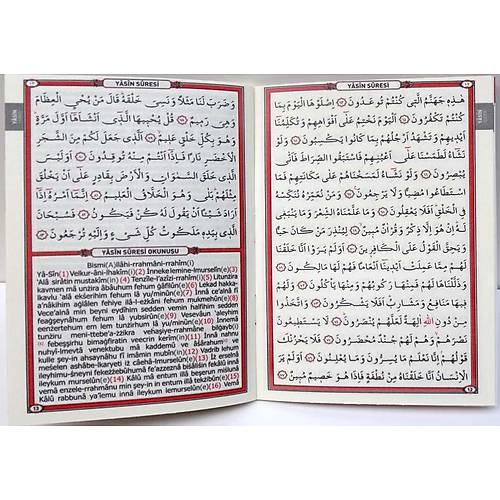 YÂSÎN SÛRESİ
هٰذِهِ جَهَنَّمُ الَّتِي كُنْتُمْ تُوعَدُونَ اِصْلَوْهَا الْيَوْمَ بِمَا
كُنْتُمْ تَكْفُرُونَ اَلْيَوْمَ نَخْتِمُ عَلٰى اَفْوَاهِهِمْ وَتُكَلِّمُنَا
اَيْدِيهِمْ وَتَشْهَدُ اَرْجُلُهُمْ بِمَا كَانُوا يَكْسِبُونَ وَلَوْ
نَشَاءُ لَطَمَسْنَا عَلٰى اَعْيُنِهِمْ فَاسْتَبَقُوا الصِّرَاطَ فَاَنّٰى
يُبْصِرُونَ وَلَوْ نَشَاءُ لَمَسَخْنَاهُمْ عَلٰى مَكَانَتِهِمْ فَمَا
اسْتَطَاعُوا مُضِيًّا وَلَا يَرْجِعُونَ وَمَنْ نُعَمِّرْهُ نُنَكِّسْهُ فِي
الْخَلْقِ اَفَلَا يَعْقِلُونَ وَمَا عَلَّمْنَاهُ الشِّعْرَ وَمَا يَنْبَغِي
لَهُ اِنْ هُوَ اِلَّا ذِكْرٌ وَقُرْاٰنٌ مُبِينٌ لِيُنْذِرَ مَنْ كَانَ حَيًّا
وَيَحِقَّ الْقَوْلُ عَلَى الْكَافِرِينَ اَوَلَمْ يَرَوْا اَنَّا خَلَقْنَا
لَهُمْ مِمَّا عَمِلَتْ اَيْدِينَا اَنْعَامًا فَهُمْ لَهَا مَالِكُونَ
وَذَلَّلْنَاهَا لَهُمْ فَمِنْهَا رَكُوبُهُمْ وَمِنْهَا يَأْكُلُونَ وَلَهُمْ
فِيهَا مَنَافِعُ وَمَشَارِبُ اَفَلَا يَشْكُرُونَ وَاتَّخَذُوا
مِنْ دُونِ اللّٰهِ اٰلِهَةً لَعَلَّهُمْ يُنْصَرُونَ لَا يَسْتَطِيعُونَ
نَصْرَهُمْ وَهُمْ لَهُمْ جُنْدٌ مُحْضَرُونَ فَلَا يَحْزُنْكَ
قَوْلُهُمْ اِنَّا نَعْلَمُ مَا يُسِرُّونَ وَمَا يُعْلِنُونَ اَوَلَمْ يَرَ
الْاِنْسَانُ اَنَّا خَلَقْنَاهُ مِنْ نُطْفَةٍ فَاِذَا هُوَ خَصِيمٌ مُبِينٌ
12
YÂSİN
YÂSÎN SÛRESİ
وَضَرَبَ لَنَا مَثَلًا وَنَسِيَ خَلْقَهُ قَالَ مَنْ يُحْيِ الْعِظَامَ
وَهِيَ رَمِيمٌ قُلْ يُحْيِيهَا الَّذِي اَنْشَاَهَا اَوَّلَ مَرَّةٍ
وَهُوَ بِكُلِّ خَلْقٍ عَلِيمٌ اَلَّذِي جَعَلَ لَكُمْ مِنَ الشَّجَرِ
الْاَخْضَرِ نَارًا فَاِذَا اَنْتُمْ مِنْهُ تُوقِدُونَ اَوَلَيْسَ
الَّذِي خَلَقَ السَّمٰوَاتِ وَالْاَرْضَ بِقَادِرٍ عَلٰى اَنْ يَخْلُقَ
مِثْلَهُمْ بَلٰى وَهُوَ الْخَلَّاقُ الْعَلِيمُ اِنَّمَا اَمْرُهُ اِذَا
اَرَادَ شَيْئًا اَنْ يَقُولَ لَهُ كُنْ فَيَكُونُ فَسُبْحَانَ
الَّذِي بِيَدِهِ مَلَكُوتُ كُلِّ شَيْءٍ وَاِلَيْهِ تُرْجَعُونَ
YÂSÎN SÛRESİ OKUNUŞU
Bismi(A)llâhi-rrahmâni-rrahîm(i)
Yâ-Sîn(1) Velkur-âni-lhakîm(i)(2) İnneke lemine-lmurselîn(e)(3)
'Alâ sirâtin mustakîm(in)(4) Tenzîle-l'azîzi-rrahîm(i)(5) Litunzira
kavmen mâ unzira âbâuhum fehum ġâfilûn(e)(6) Lekad hakka-
lkavlu 'alâ ekśerihim fehum lâ yu/minûn(e)(7) İnnâ ce'alnâ fî
a'nâkihim aġlâlen fehiye ilâ-l-eżkâni fehum mukmehûn(e)(8)
Vece'alnâ min beyni eydîhim sedden vemin ḣalfihim sedden
feaġşeynâhum fehum lâ yubsirûn(e)(9) Vesevâun 'aleyhim
eenżertehum em lem tunżirhum lâ yu/minûn(e)(10) İnnemâ
tunżiru meni-ttebe'a-żżikra veḣaşiye-rrahmâne bilġayb(i)
febeşşirhu bimaġfiratin veecrin kerîm(in)(11) İnnâ nahnu
nuhyî-lmevtâ venektubu mâ kaddemû ve âśârahum
kulle şey-in ahsaynâhu fî imâmin mubîn(in)(12) Vadrib lehum
meśelen ashâbe-lkaryeti iż câehâ-lmurselûn(e)(13) İż erselnâ
ileyhimu-śneyni fekeżżebûhumâ fe'azzeznâ biśâliśin fekâlû innâ
ileykum murselûn(e)(14) Kâlû mâ entum illâ beşerun miślunâ
vemâ enzele-rrahmânu min şey-in in entum illâ tekżibûn(e)(15)
Kâlû rabbunâ ya'lemu innâ ileykum lemurselûn(e)(16) Vemâ
13
YÂSİN